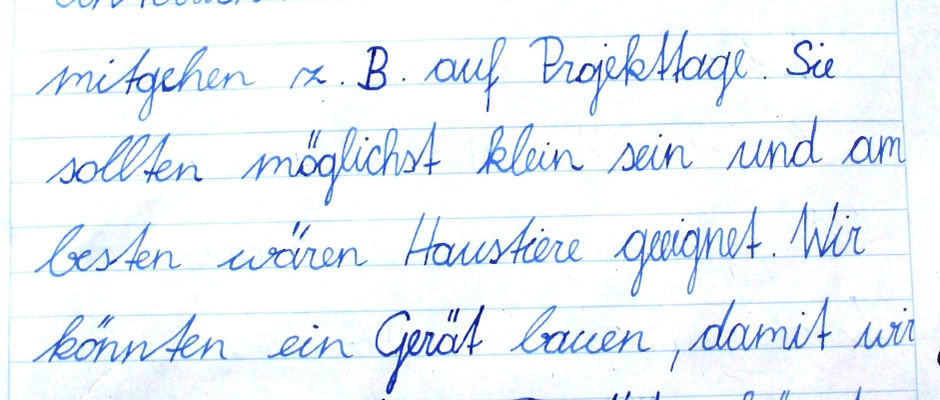 mitgehen z. B. auf Projekttage. Sie
sollten möglichst klein sein und am
besten wären Haustiere geeignet. Wir
könnten ein Gerät bauen, damit wir